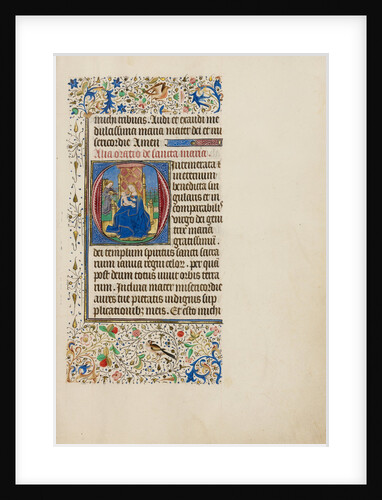 michi tribuas. Audi et exaudi me
dulcissima maria mater dei et mi
sericordie Amen
Alia oratio de sancta maria.
O Intemerata et
in eternum
benedicta sin
gularis et in
comparabilis
virgo dei geni
trix maria
gratissimum
dei templum spiritus sancti sacra
rium ianua regni celor. per quā
post deum totus vivit orbis terra
rum. Inclina mater misericordie
aures tue pietatis indignis sup
plicationib; meis. Et esto michi